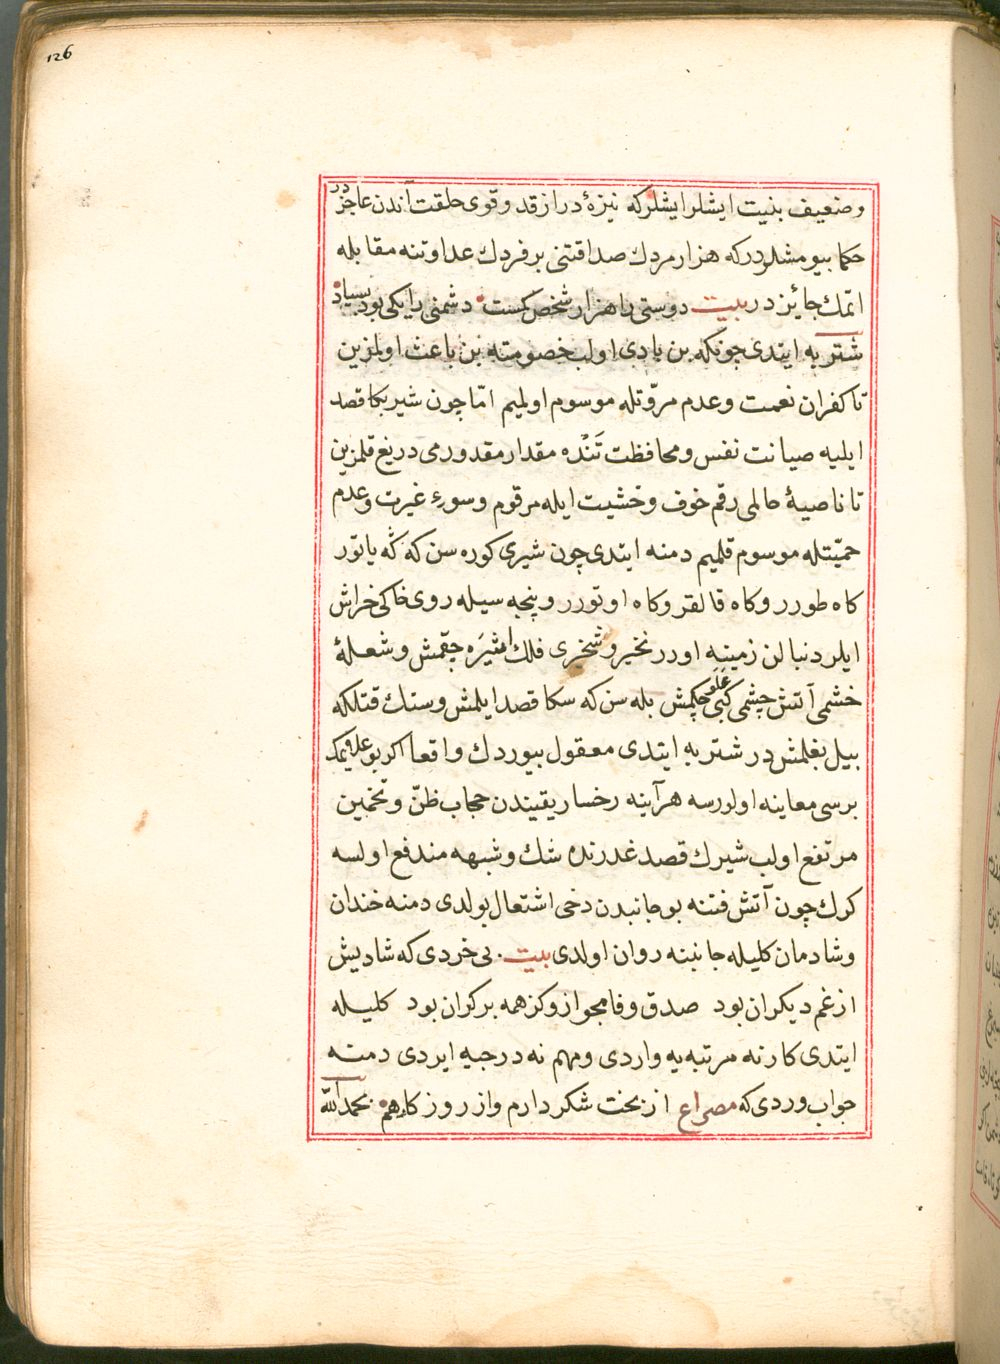 126
و ضعیف بنیت ایشلر ایشلر که نیزهٔ دراز قد و قوی خلقت آندن عاجز در
حکما بیومشلردر که هزار مردك صداقتنی بر فردك عداوتنه مقابله
اتمك جائز در بیت دوستی را هزار شخص کمست دشمنی را یکی بود بسیار
شتربه ایتدی چونکه بن بادی اولب خصومته بن باعث اولمزین
تا کفران نعمت و عدم مروّتله موسوم اولمیم امّا چون شیر بکا قصد
ایلیه صیانت نفس و محافظت تنده مقدار مقدورمی دریغ قلمزین
تا ناصیهٔ حالمی رقم خوف و خشیت ایله مرقوم و سوء غیرت و عدم
حمیّتله موسوم قلمیم دمنه ایتدی چون شیری کوره سن که گه یاتور
کاه طورر و کاه قالقر و کاه اوتورر و پنجه سیله روی خاکی خراش
ایلر دنبالن زمینه اورر نخیر و شخیری فلك اثیره چقمش و شعلهٔ
خشمی آتش چشمی کبی علو چکمش بله سن که سکا قصد ایلمش و سنك قتلکه
بیل بغلمش در شتربه ایتدی معقول بیوردك واقعا اکر بو علامتك
برسی معاینه اولورسه هرآینه رخسار یقیندن حجاب ظنّ و تخمین
مرتفع اولب شیرك قصد غدرنده شك و شبهه مندفع اولسه
کرك چون آتش فتنه بو جانبدن دخی اشتعال بولدی دمنه خندان
و شادمان کلیله جانبنه روان اولدی بیت بی خردی که شادیش
از غم دیکران بود صدق و فا مجو ازو کز همه بر کران بود کلیله
ایتدی کار نه مرتبه یه واردی و مهم نه درجیه ایردی دمنه
جواب وردی که مصراع از بخت شکر دارم و از روز کار هم بحمد الله